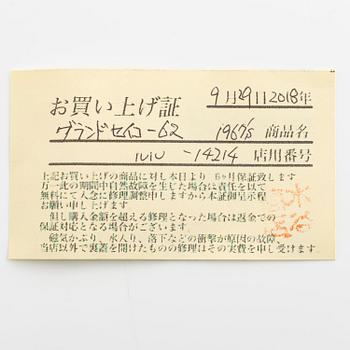 9月29日2018年
お買い上げ証
グランドセイコー62 1967's 商品名
-14214 店用番号
上記お買い上げの商品に対し本日より 6ヶ月保証致します
万一此の期間中自然故障を生じた場合は責任を以て
無料にて入念に修理調整申しますから本証御呈示程
お願い申し上げます
但し購入金額を超える修理となった場合は返金での
保証対応となる場合がございます。
磁気かぶり、水入り、落下などの衝撃が原因の故障、
当店以外で裏蓋を開けたものの修理はその実費を申し受けます。